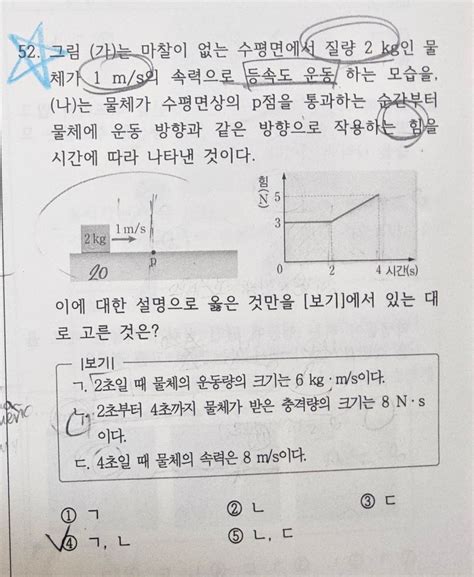 52. 그림 (가)는 마찰이 없는 수평면에서 질량 2 kg인 물
체가 1 m/s의 속력으로 등속도 운동 하는 모습을,
(나)는 물체가 수평면상의 p점을 통과하는 순간부터
물체에 운동 방향과 같은 방향으로 작용하는 힘을
시간에 따라 나타낸 것이다.
2 kg
1 m/s
p
20
힘
(N)
5
3
0
2
4 시간(s)
이에 대한 설명으로 옳은 것만을 [보기]에서 있는 대
로 고른 것은?
|보기|
ㄱ. 2초일 때 물체의 운동량의 크기는 6 kg·m/s이다.
ㄴ. 2초부터 4초까지 물체가 받은 충격량의 크기는 8 N·s
이다.
ㄷ. 4초일 때 물체의 속력은 8 m/s이다.
① ㄱ
② ㄴ
③ ㄷ
④ ㄱ, ㄴ
⑤ ㄴ, ㄷ